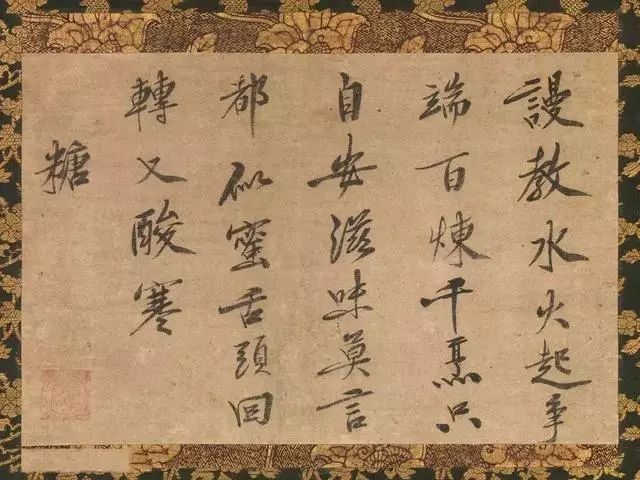 謾教水火起事
端百煉千烹只
自安滋味莫言
都似蜜舌頭回
轉又酸寒
糖